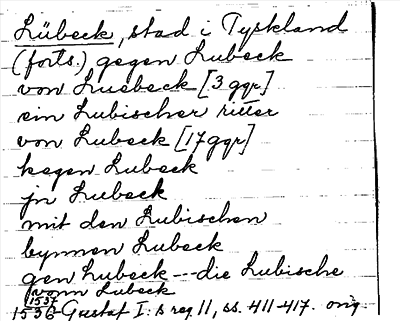 Lübeck, stad i Tyskland
(forts.) gegen Lubeck
von Luebeck [3 ggr]
ein Lubischer ritter
von Lubeck [17 ggr]
kegen Lubeck
jn Lubeck
mit den Lubischen
bynnen Lubeck
gen Lubeck --- die Lubische
vonn Lubeck
1537
1536 Gustaf I:s reg 11, ss. 411-417. orig.